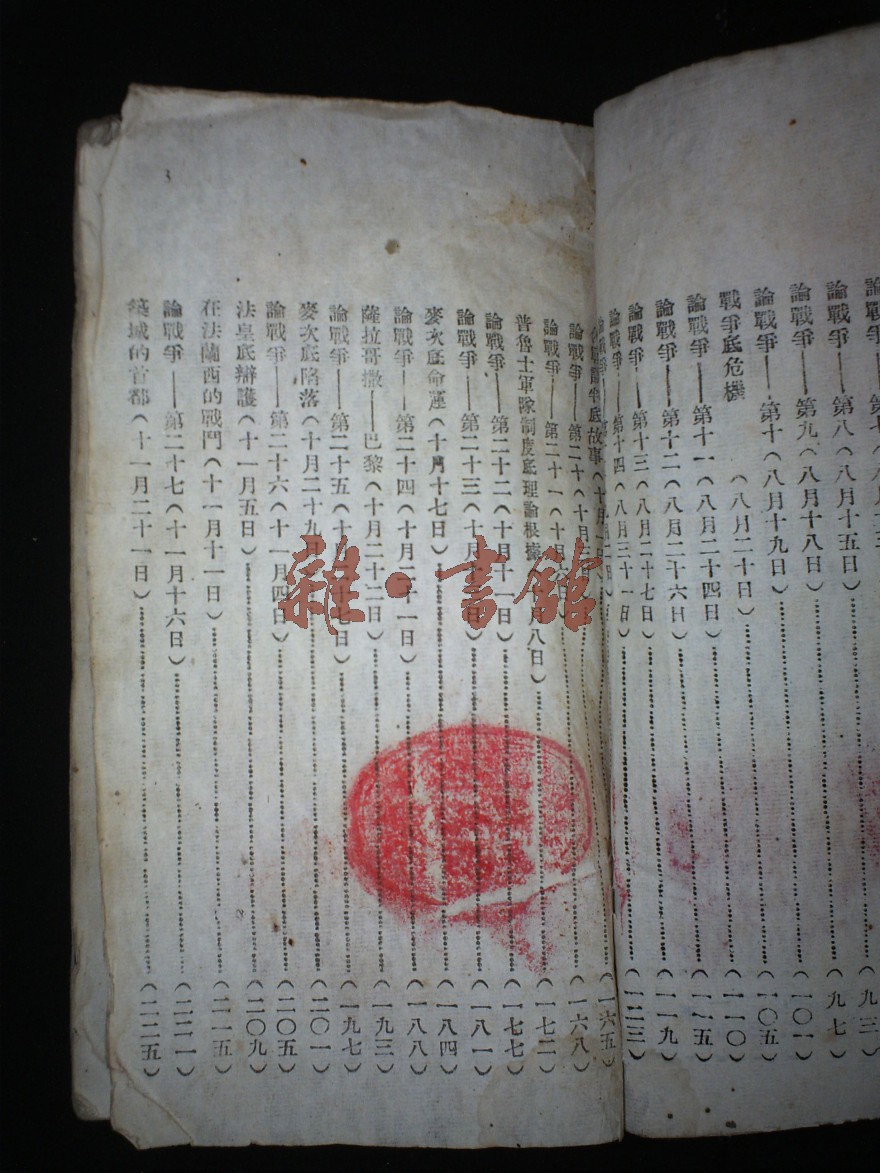 論戰爭——第八(八月十五日)……(九七)
論戰爭——第九(八月十八日)……(一〇一)
論戰爭——第十(八月十九日)……(一〇五)
戰爭底危機(八月二十日)……(一一〇)
論戰爭——第十一(八月二十四日)……(一一五)
論戰爭——第十二(八月二十六日)……(一一九)
論戰爭——第十三(八月二十七日)……(一二三)
論戰爭——第十四(八月三十一日)……
底故事(十月一日)……(一六五)
論戰爭——第二十(十月……(一六八)
論戰爭——第二十一(十月六日)……(一七二)
普魯士軍隊制度底理論根據 月八日)……(一七七)
論戰爭——第二十二(十月十一日)……(一八一)
論戰爭——第二十三(十月 日)……(一八四)
麥次底命運(十月十七日)……(一八八)
論戰爭——第二十四(十月二十一日)……(一九三)
薩拉哥撒——巴黎(十月二十二日)……(一九七)
論戰爭——第二十五(十月二十七日)……(二〇一)
麥次底陷落(十月二十九日)……(二〇五)
論戰爭——第二十六(十一月四日)……(二〇九)
法皇底辯護(十一月五日)……(二一五)
在法蘭西的戰鬥(十一月十一日)……
論戰爭——第二十七(十一月十六日)……(二二一)
築城的首都(十一月二十一日)……(二二五)
雜·書館